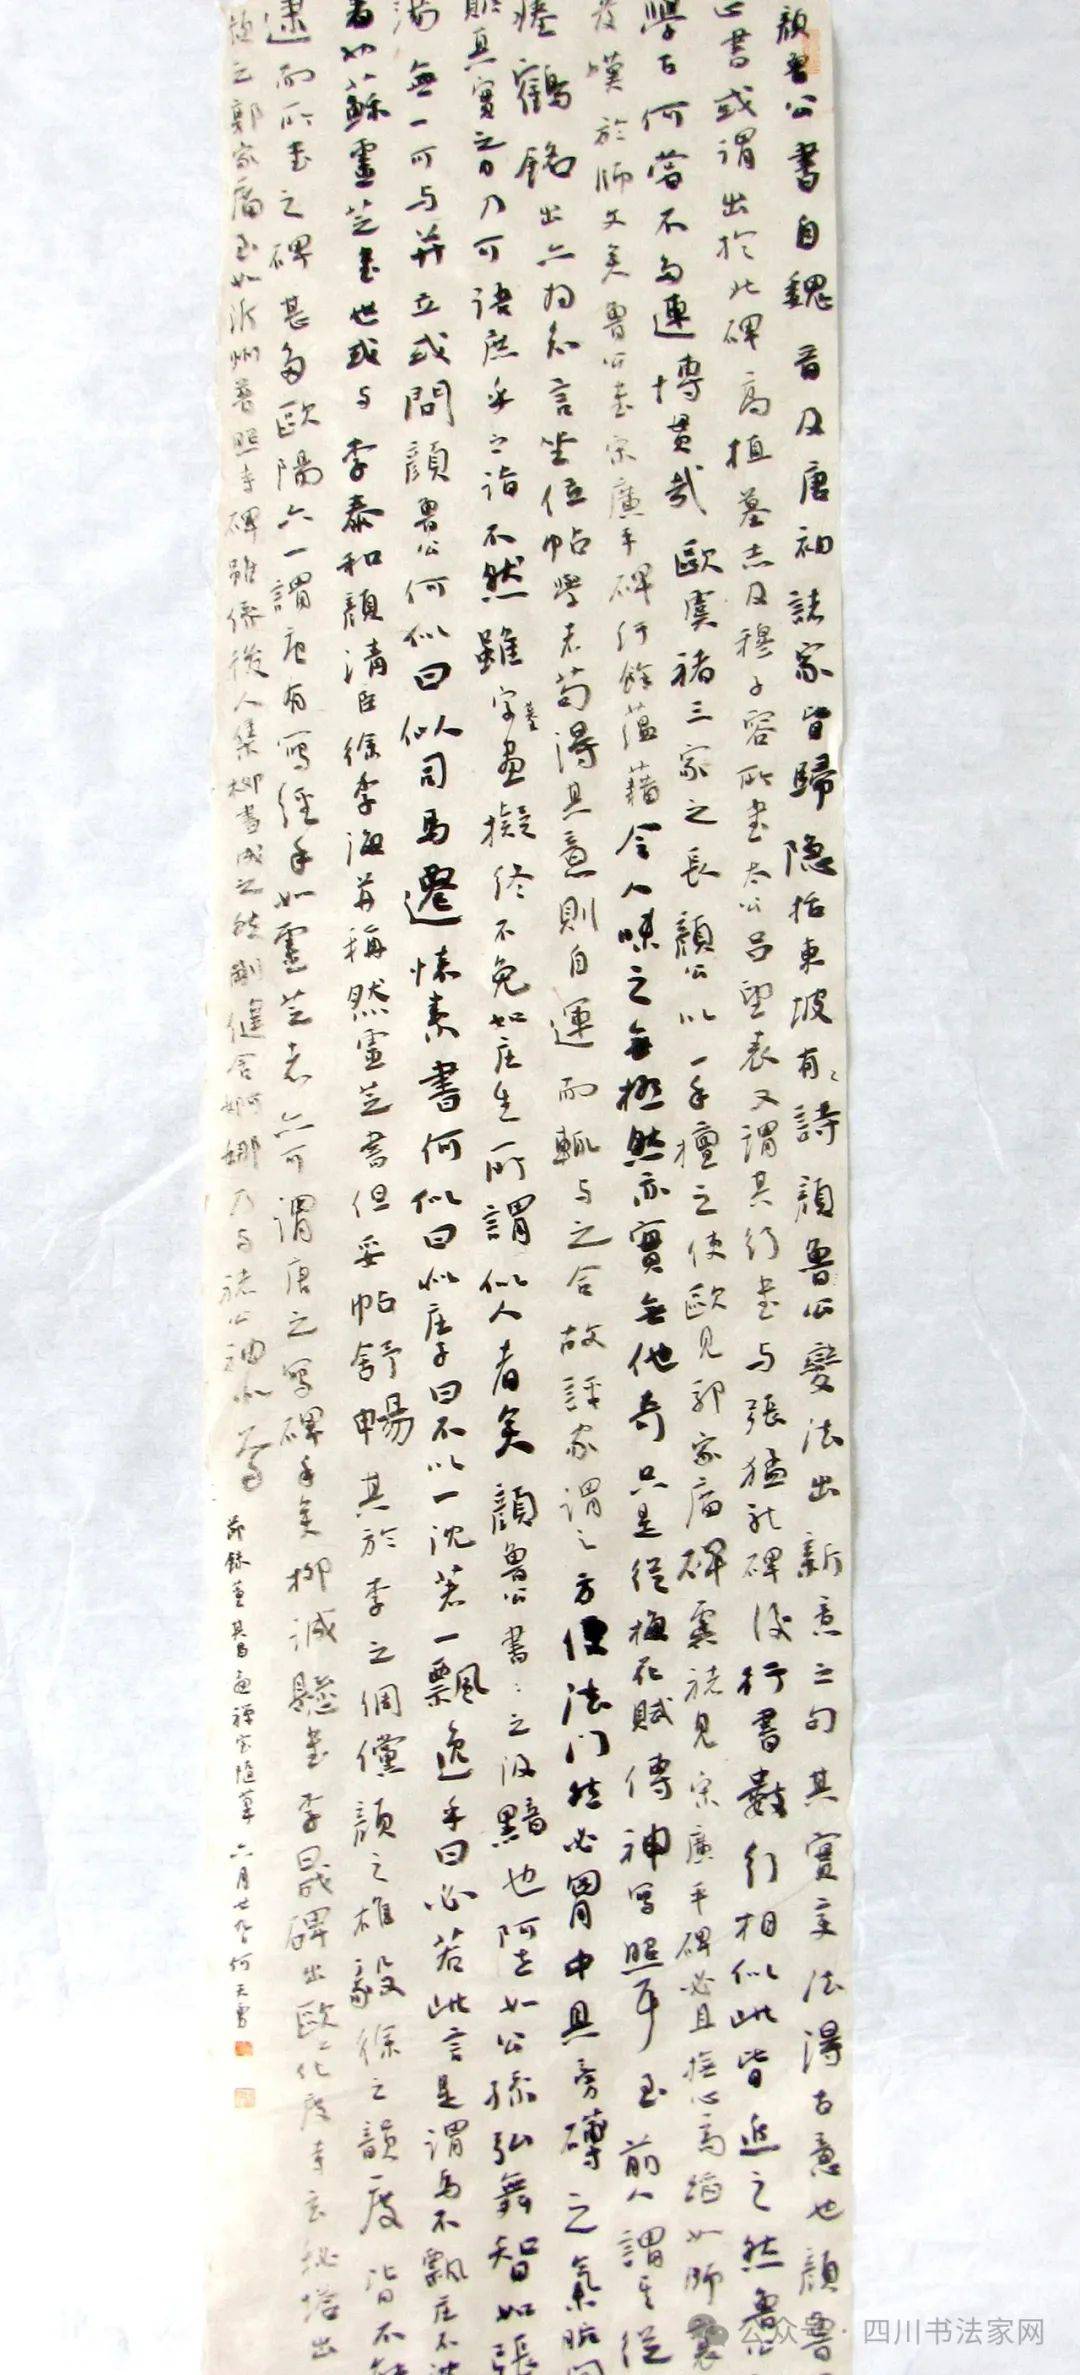 顔魯公書自魏晉及唐初諸家皆歸隐括東坡有詩顔魯公變法出新意之句其實变法得古意也顔魯
公書或謂出於此碑高植墓志及穆子容所書太公吕望表又謂其行書与張猛龙碑後行書數行相似此皆近之然魯公
學古何嘗不多連博貫哉歐虞褚三家之長顔公以一手擅之使歐見郭家廟碑虞褚見宋廣平碑必且撫心高蹈如師襄
發嘆於師文矣魯公書宋廣平碑行餘蕴藉令人味之無極然亦實無他奇只是從梅花賦傳神写照耳至前人謂其從
瘗鶴銘出亦为知言坐位帖學者苟得其意則自運而輒与之合故評家謂之方便法门然必胷中具旁礴之氣腕间
賅真實之力乃可語庶乎之詣不然雖字畫摹擬終不免如庄生所謂似人者矣顔魯公書書之汲黯也阿世如公孫弘舞智如張
湯無一可与并立或問顔魯公何似曰似司馬遷懷素書何似曰似庄子曰不以一沈著一飄逸乎曰必若此言是謂馬不飄庄不沈
着也蘇靈芝書世或与李泰和顔清臣徐季海并稱然靈芝書但妥帖舒暢其於李之倜儻顔之雄毅徐之韻度皆不能
逮而所书之碑甚多歐陽六一謂唐有写經手如靈芝者亦可謂唐之写碑手矣柳诚懸書李晟碑出歐之化度寺玄秘塔出
顔之郭家廟至如沂州普照寺碑雖係後人集柳書成之然剛健含婀娜乃与褚公神似焉
節録董其昌画禅室随筆六月廿九何天雪
公众号·四川书法家网